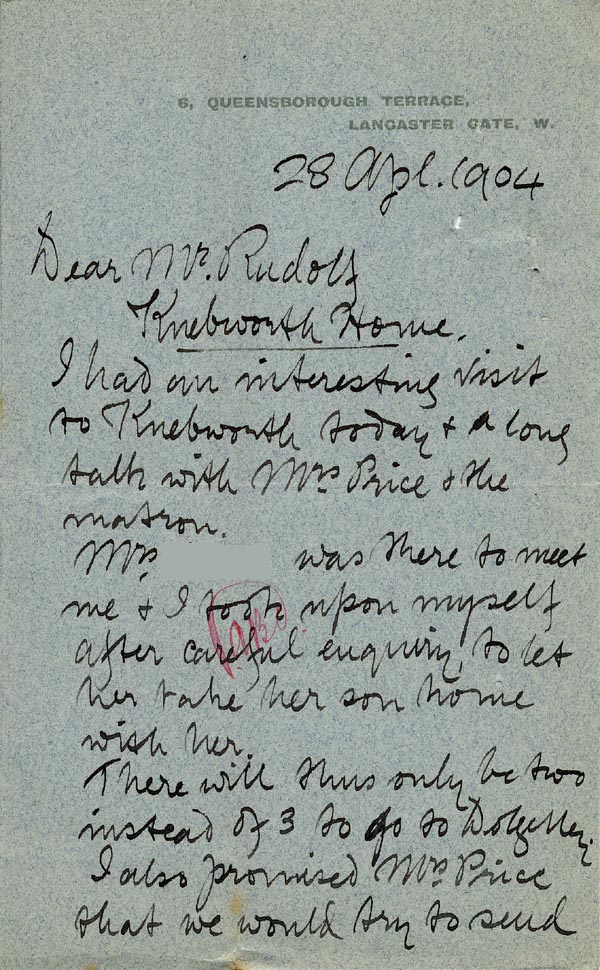 6, QUEENSBOROUGH TERRACE,
LANCASTER GATE, W.
28 Apl. 1904
Dear Mr. Rudolf
Knebworth Home.
I had an interesting visit
to Knebworth today & a long
talk with Mrs Price & the
matron.
Mrs was there to meet
me & I took upon myself
after careful enquiry, to let
her take her son home
with her.
There will thus only be two
instead of 3 to go to Dolgelley.
I also promised Mrs Price
that we would try to send